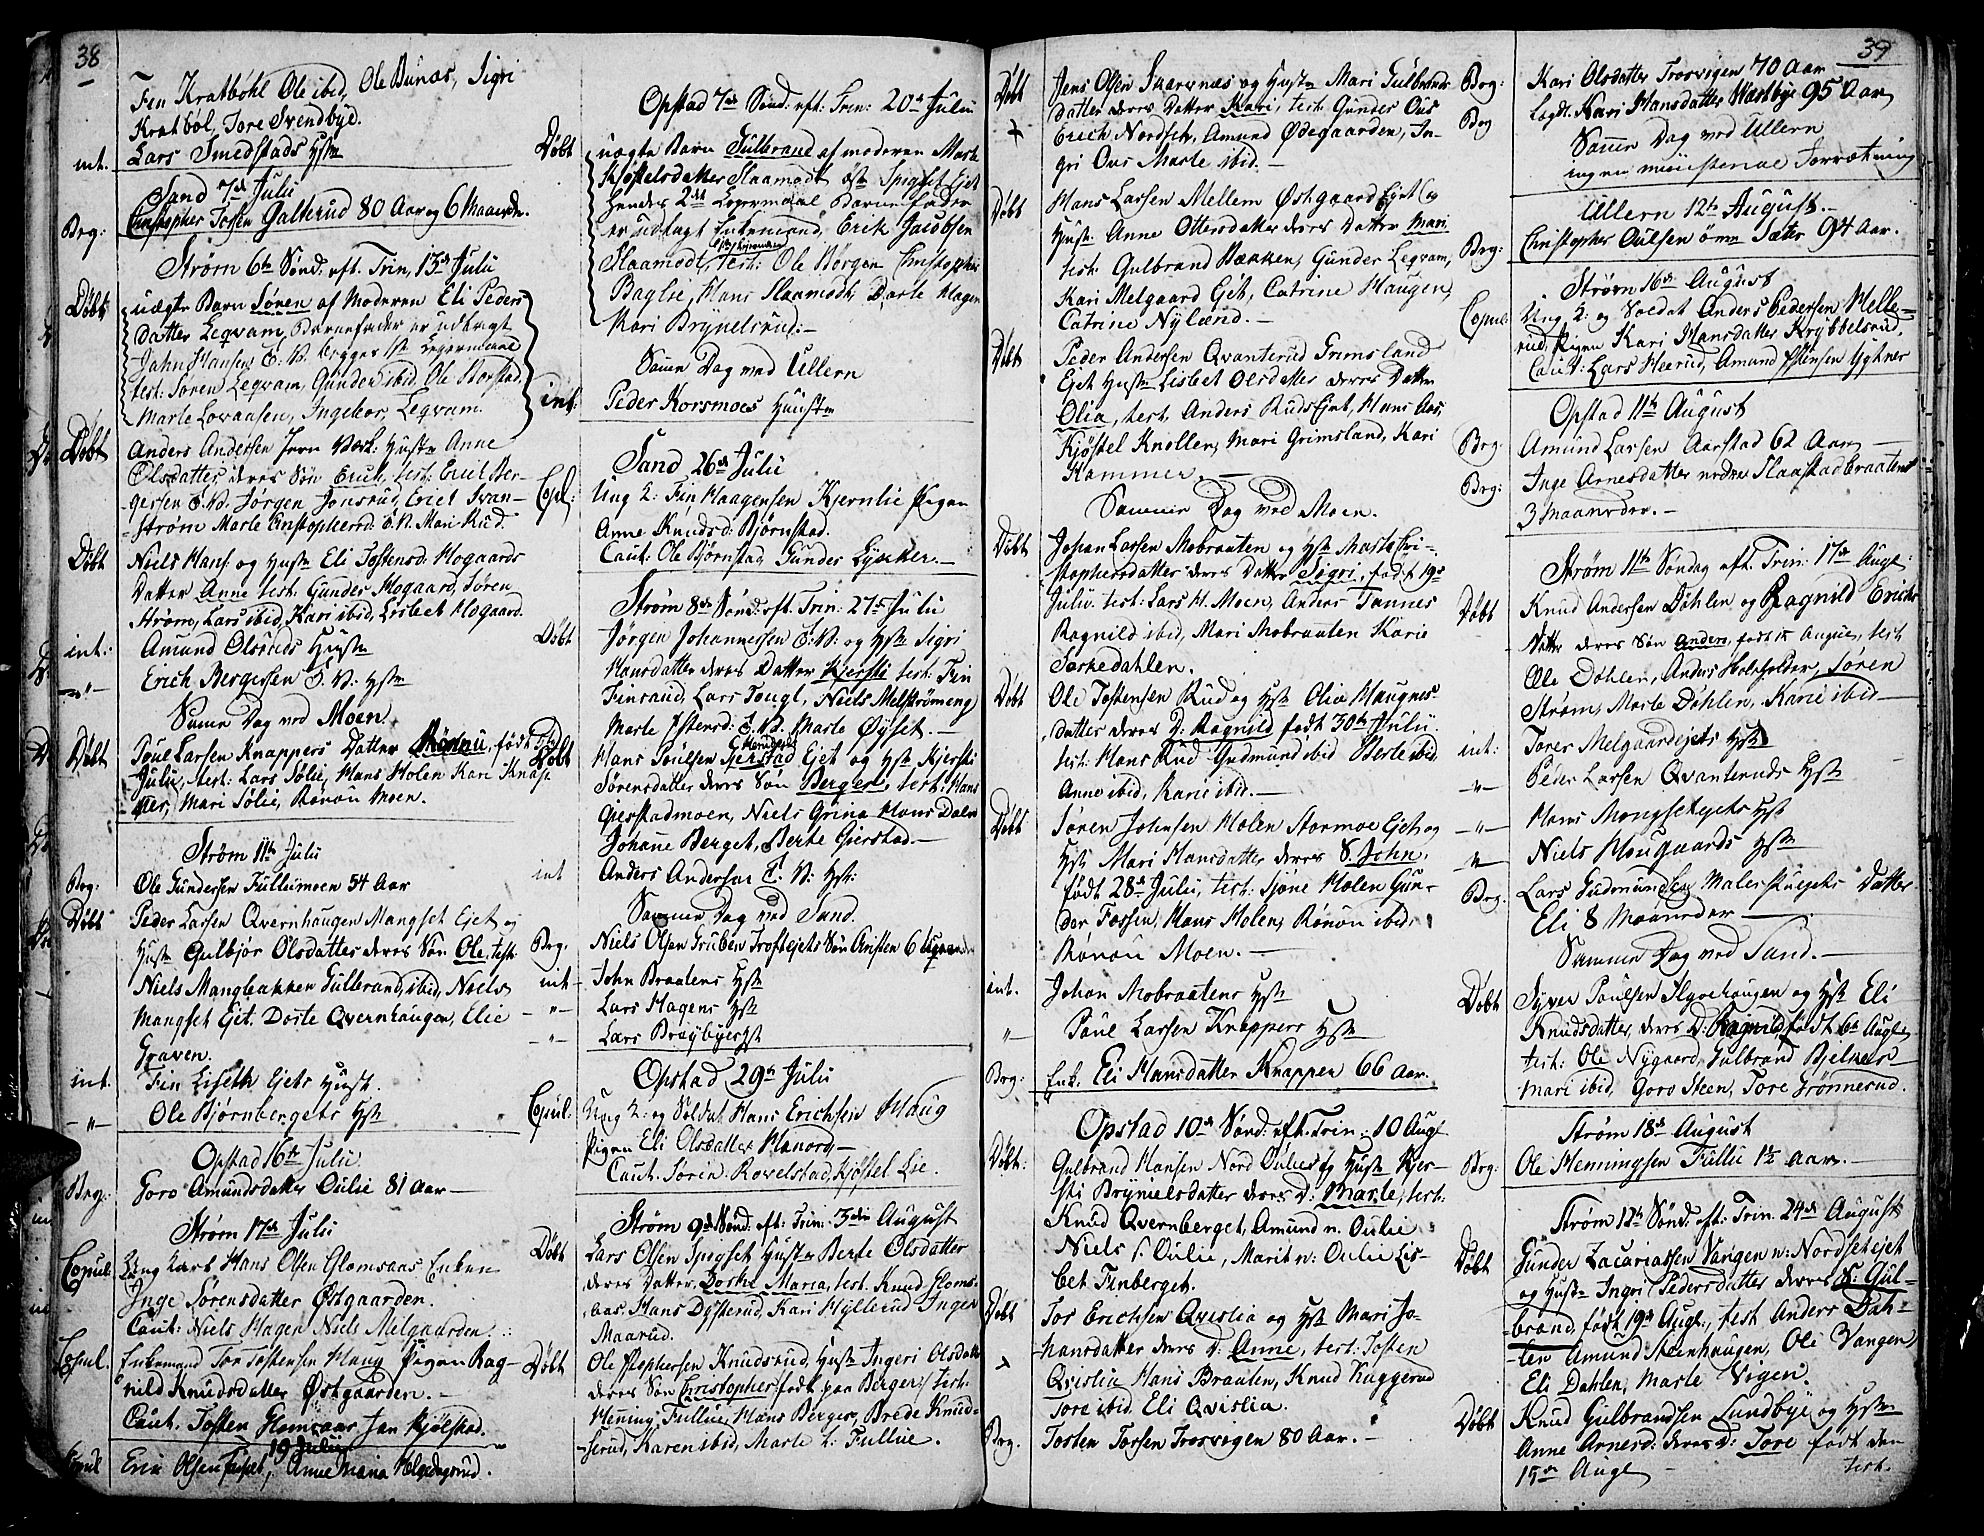 38
Fin Kratböhl Ole ibid, Ole Bunæs, Sigri
Kratböl, Tore Svendbye.
int. Lars Smedstads Hstr
Sand 7de Julii
Beg: Christopher Tosten Galterud 80 Aar og 6 Maaneder.
Strøm 6te Sönd. eft. Trin, 13de Julii
Döbt uægte Barn Sören af Moderen Eli Peders
Datter Leqvam, Barnefader er udlagt
John Hansen E. V. begges 1ste Leiermaal
test: Sören Leqvam, Gunder ibid, Ole Storstad
Marte Lovaasen, Ingebor Leqvam.
Döbt Anders Andersen Jern Verk: Hustr Anne
Olsdatter, deres Sön Erich, test: Erich Ber-
gersen E.V. Jörgen Jonsrud, Erich Svan-
ström Marte Christophersd: E.V. Mari Rud.
Döbt Niels Hans: og Hustr Eli Tostensd. Mogaards
Datter Anne test: Gunder Mogaard, Sören
Ström, Lars ibid, Kari ibid, Lisbet Mogaard.
int: Amund Olsruds Hustr
-"- Erich Bergersen E. V: Hstr
Samme Dag ved Moen
Döbt Poul Larsen Knappers Datter Rönnu, född
Julii, test: Lars Sölie, Hans Holen Kari Knap-
per, Mari Sölie, Rönnu Moen.
Ström 11te Julii
Beg: Ole Gundersen Fullumoen 54 Aar
Döbt Peder Larsen Qvernhaugen Mangset Ejet og
Hustr Gulbjör Olsdatter deres Sön Ole, test:
Niels Mangbakken Gulbrand, ibid, Niels
Mangset Ejet. Dorte Qvernhaugen, Elie
Graven.
int. Fin Liseth Ejets Hustr.
-"- Ole Bjørnbergets Hstr
Opstad 16te Julii
Beg: Goro Amundsdatter Oulie 81 Aar
Ström 17de Julii
Copul. Ung Karl Hans Olsen Glomsaas Enken
Inge Sörensdatter Østgaarden.
Caut: Niels Hagen Niels Melgaarden.
Copul. Enkemand Tor Tostensen Haug Pigen Rag-
nild Knudsdatter Østgaarden.
Caut. Tosten Glomsaas Jan Kjölstad.
19 Julii
Copul Eric Olsen, Anne Maria Helgedagsrud.
Opstad 7de Sönd. eft: Trin: 20de Julii
Döbt uægte Barn Gulbrand af moderen Marte
Kjöstelsdatter Slaamodt öst Spigset Ejet
hendes 2det Leiermaal Barnefader
er udlagt Enkemand, Erik Jacobsen
Slaamodt, test: Ole Börgen Christopher
Baglie, Hans Slaamodt, Dorte Hagen
Kari Brynelsrud:
Samme Dag ved Ullern
int: Peder Korsmoes Huustr
Sand 26de Julii
Copl: Ung K: Fin Haagensen Kjernlie Pigen
Anne Knudsd: Björnstad.
Caut: Ole Björnstad Gunder Lyseker.
Ström 8de Sönd. eft. Trin: 27de Julii
Döbt Jörgen Johannessen E.V. og Hstr Sigri
Hansdatter deres Datter Kjersti test: Fin
Finsrud, Lars Fougl, Niels Melströmeng
Marte Iversd: E.V. Marte Øyset.
Döbt Hans Poulsen Gjerstad Ejet og Hstr Kjersti
Sörensdatter deres Sön Berger, test: Hans
Gjerstadmoen, Niels Grina Hans Dalen
Johane Berget, Berte Gjerstad.
int Anders Andersen E.V: Hstr:
Samme Dag ved Sand.
Beg. Niels Olsen Gruben Troftejets Sön Anstten 6 uger
int John Braatens Hstr
-"- Lars Hagens Hstr
-"- Lars Brøybyes Hstr
Opstad 29de Julii
Copul. Ung K: og Soldat Hans Erichsen Haug
Pigen Eli Olsdatter Hanord
Caut. Sören Rovelstad, Kjöstel Lie.
Ström 9de Sönd: eft: Trin: 3die August
Döbt Lars Olsen Spigset Hustr Berte Olsdatter
deres Datter Dorthe Maria, test: Knud Gloms-
aas, Hans Dysterud, Kari Hyllerud Inger
Maarud.
Döbt Ole Stophersen Knudsrud, Hustr Ingeri Olsdatter
deres Sön Christopher född paa Berger, test.
Hening Fullue, Hans Berger, Brede Knud-
serud, Karen ibid, Marte L: Fullue.
39
Döbt Jens Olsen Skarnæs og Hustr Mari Gulbrands-
datter deres Datter Kari, test: Gunder Ous
Erich Nordseth, Amund Ödegaarden, In-
gri Ous Marte ibid.
Döbt Hans Larsen Mellem Østgaard Ejet og
Hustr Anne Ottersdatter deres Datter Mari
test: Gulbrand Bakken, Gunder Leqvam,
Kari Melgaard Ejet, Catrine Haugen,
Catrine Nylænd.
Döbt Peder Andersen Qvanterud Grimsland
Ejet Hustr Lisbet Olsdatter deres Datter
Olia, test. Anders Ruds Ejet, Hans Aas,
Kjöstel Knollen, Mari Grimsland, Kari
Hammer.
Samme Dag ved Moen.
Döbt Johan Larsen Mobraaten og Hstr Marte Cri-
stophersdatter deres Datter Sigri, född 19de
Julii. test: Lars H. Moen, Anders Tannes
Ragnild ibid, Mari Mobraaten Karie
Sorkedahlen.
Döbt Ole Tostensen Rud og Hstr Olia Haagens-
datter deres D: Ragnild född 30te Julii
test: Hans Rud Gudmund ibid Berte ibid
Anne ibid, Karie ibid.
Döbt Sören Johnsen Holen Stormoe Ejet og
Hstr Mari Hansdatter deres S. John,
född 28de Julii, test: Sjöne Holen Gun-
der Fossen, Hans Holen, Rönnu ibid,
Rönnu Moen.
int. Johan Mobraatens Hstr
" Poul Larsen Knappers Hstr
Beg: Enk. Eli Hansdatter Knapper 66 Aar.
Opstad 10de Sönd: eft: Trin: 10 Augt
Döbt: Gulbrand Hansen Nord Oulies og Hustr Kjer-
sti Brynielsdatter deres D: Marte, test:
Knud Qvernberget, Amund n. Oulie
Niels s. Oulie, Marit n: Oulie Lis-
bet Finberget.
Döbt Tor Erichsen Qvislia og Hstr Mari Jo-
hansdatter deres D: Anne, test: Tosten
Qvislia Hans Braaten, Knud Kuggerud
Tore ibid. Eli Qvislia.
Beg. Tosten Torsen Trosvigen 80 Aar.
Beg: Kari Olsdatter Trosvigen 70 Aar
Beg Logd. Kari Hansdatter Wæstbye 95 Aar
Samme Dag ved Ullern
ingen ministerial Forretning
Ullern 12te August.
Beg: Christopher Oulsen övre Sæter 94 Aar.
Ström 16de August
Copul: Ung K: og Soldat Anders Pedersen Melle-
rud, Pigen Kari Hansdatter Krybbelsrud,
Caut: Lars Heerud, Amund Estensen Ygkner
Opstad 11te August
Beg: Amund Larsen Aarstad 62 Aar
Beg: Inge Arnesdatter nedre Slaastad braaten
3 Maaneder.
Ström 11te Söndag eft. Trin: 17de Augt.
Döbt Knud Andersen Döhlen og Ragnild Erichs-
datter deres Sön Anders, född 15 August, test
Ole Döhlen, Anders Holsholder, Sören
Ström, Marte Döhlen, Karie ibid
int: Tores Melgaardejets Hstr
-"- Peder Larsen Qvanteruds Hstr
-"- Hans Mangsetejets Hstr
-"- Niels Hougaards Hstr
Beg. Lars Gudmundsen Malerstuejets Datter
Eli 8 Maaneder
Samme Dag ved Sand.
Döbt Syver Poulsen Skyvehaugen og Hstr Eli
Knudsdatter, deres D: Ragnild, född 6te Augt
test: Ole Nygaard, Gulbrand Bjelker
Mari ibid, Goro Steen, Tore Grönnerud.
Ström 18de August
Beg: Ole Henningsen Fullu 1½ Aar.
Ström 12te Sönd: eft: Trin. 24de August
Döbt Gunder Zacariassen Vangen n: Nordsetejet
og Hustr Ingri Pedersdatter deres S: Gul-
brand född 19de Augt., test Anders Dah-
len Amund Steenhaugen, Ole Vangen,
Eli Dahlen, Marte Vigen.
Döbt Knud Gulbrandsen Sundbye og Hstr
Anne Arnesd: deres D: Tore född den
15de Augt
test.